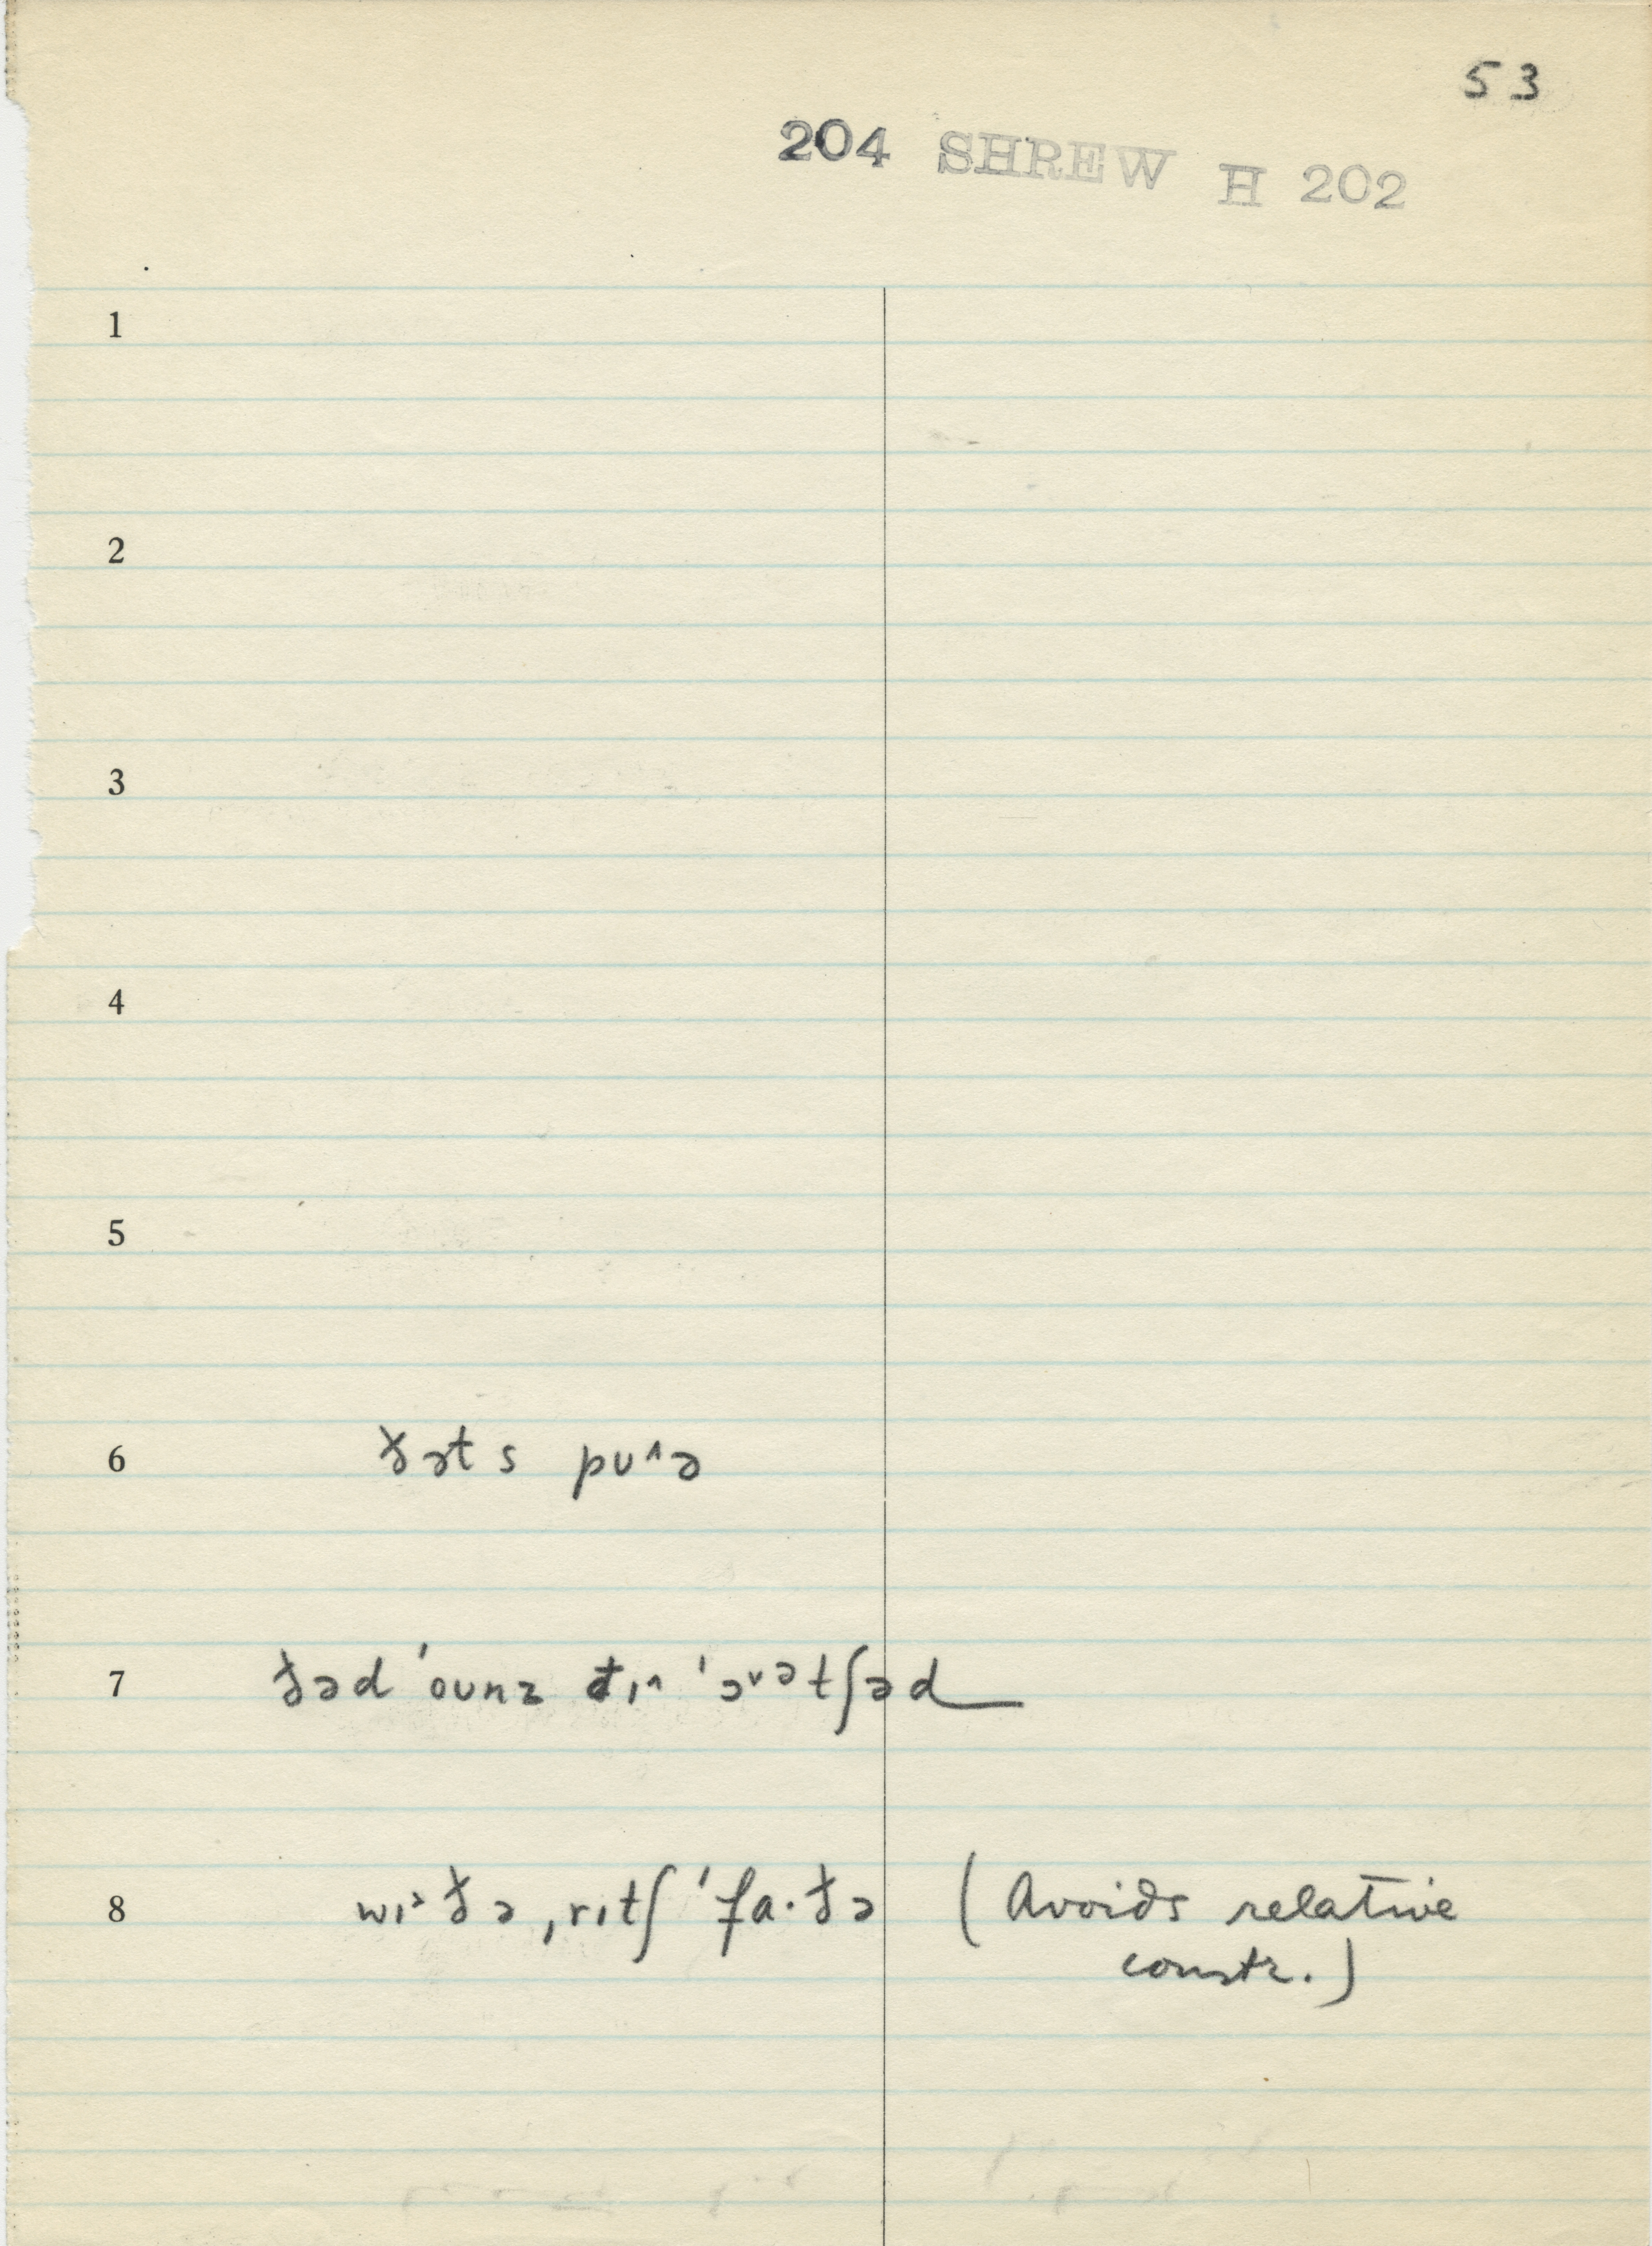 53
204 SHREW H 202
1
2
3
4
5
6 ðət s pʊ^ə
7 ðəd ˈoʊnz ðɪ^ ˈɔ˅ətʃəd
8 wɪ˃ðə ˌrɪtʃ ˈfa·ðə (Avoids relative
constr.)